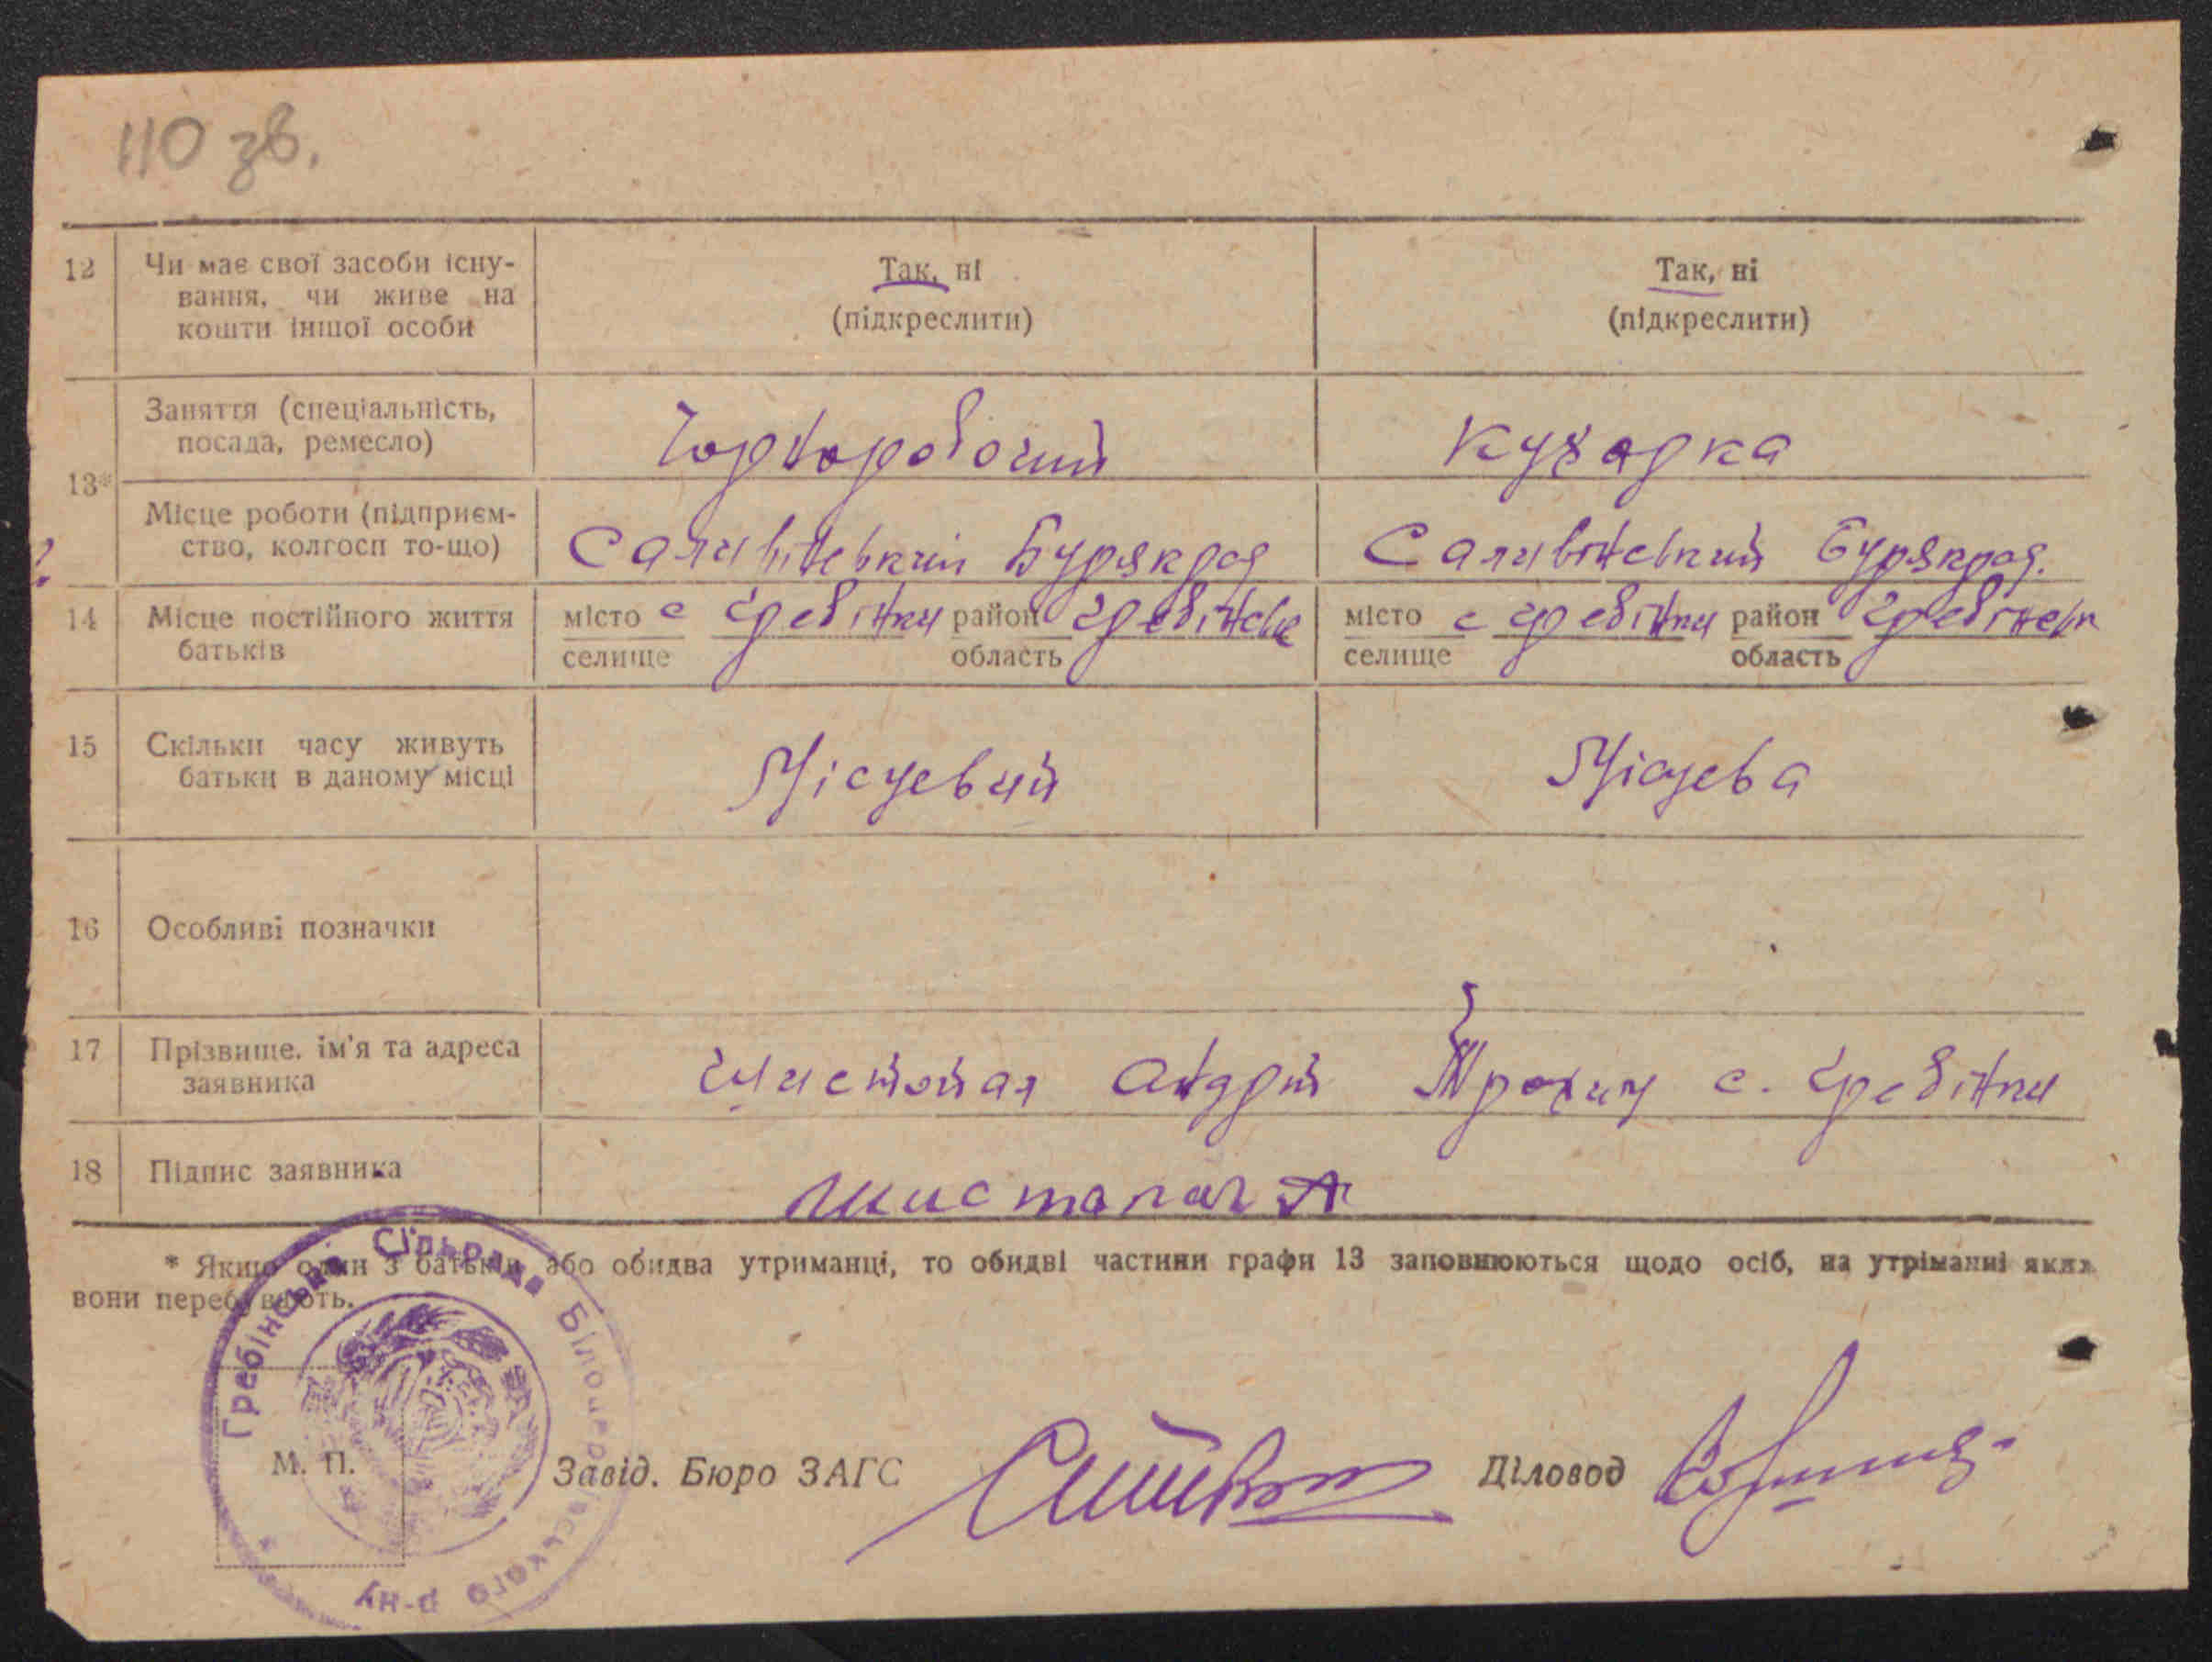 110 зв.
12 Чи має свої засоби існу-
вання, чи живе на
кошти іншої особи
Так, ні
(підкреслити)
Так, ні
(підкреслити)
13*
Заняття (спеціальність,
посада, ремесло)
Чорноробочий
Кухарка
Місце роботи (підприєм-
ство, колгосп то-що)
Саливіневкий Бурякрад
Саливіневкий Бурякрад.
14 Місце постійного життя
батьків
місто с Гребінки район Гребіневк
селище область
місто с Гребінки район Гребіневк
селище область
15 Скільки часу живуть
батьки в даному місці
Місцевий
Місцева
16 Особливі позначки
17 Прізвище, ім'я та адреса
заявника
Андрій Трохим с. Гребінки
18 Підпис заявника
* Якщо один з батьків або обидва утриманці, то обидві частини графи 13 заповнюються щодо осіб, на утріманні яких
вони перебувають.
Гребінська Сільрада Білоцерківського р-ну
М. П.
Завід. Бюро ЗАГС
Діловод